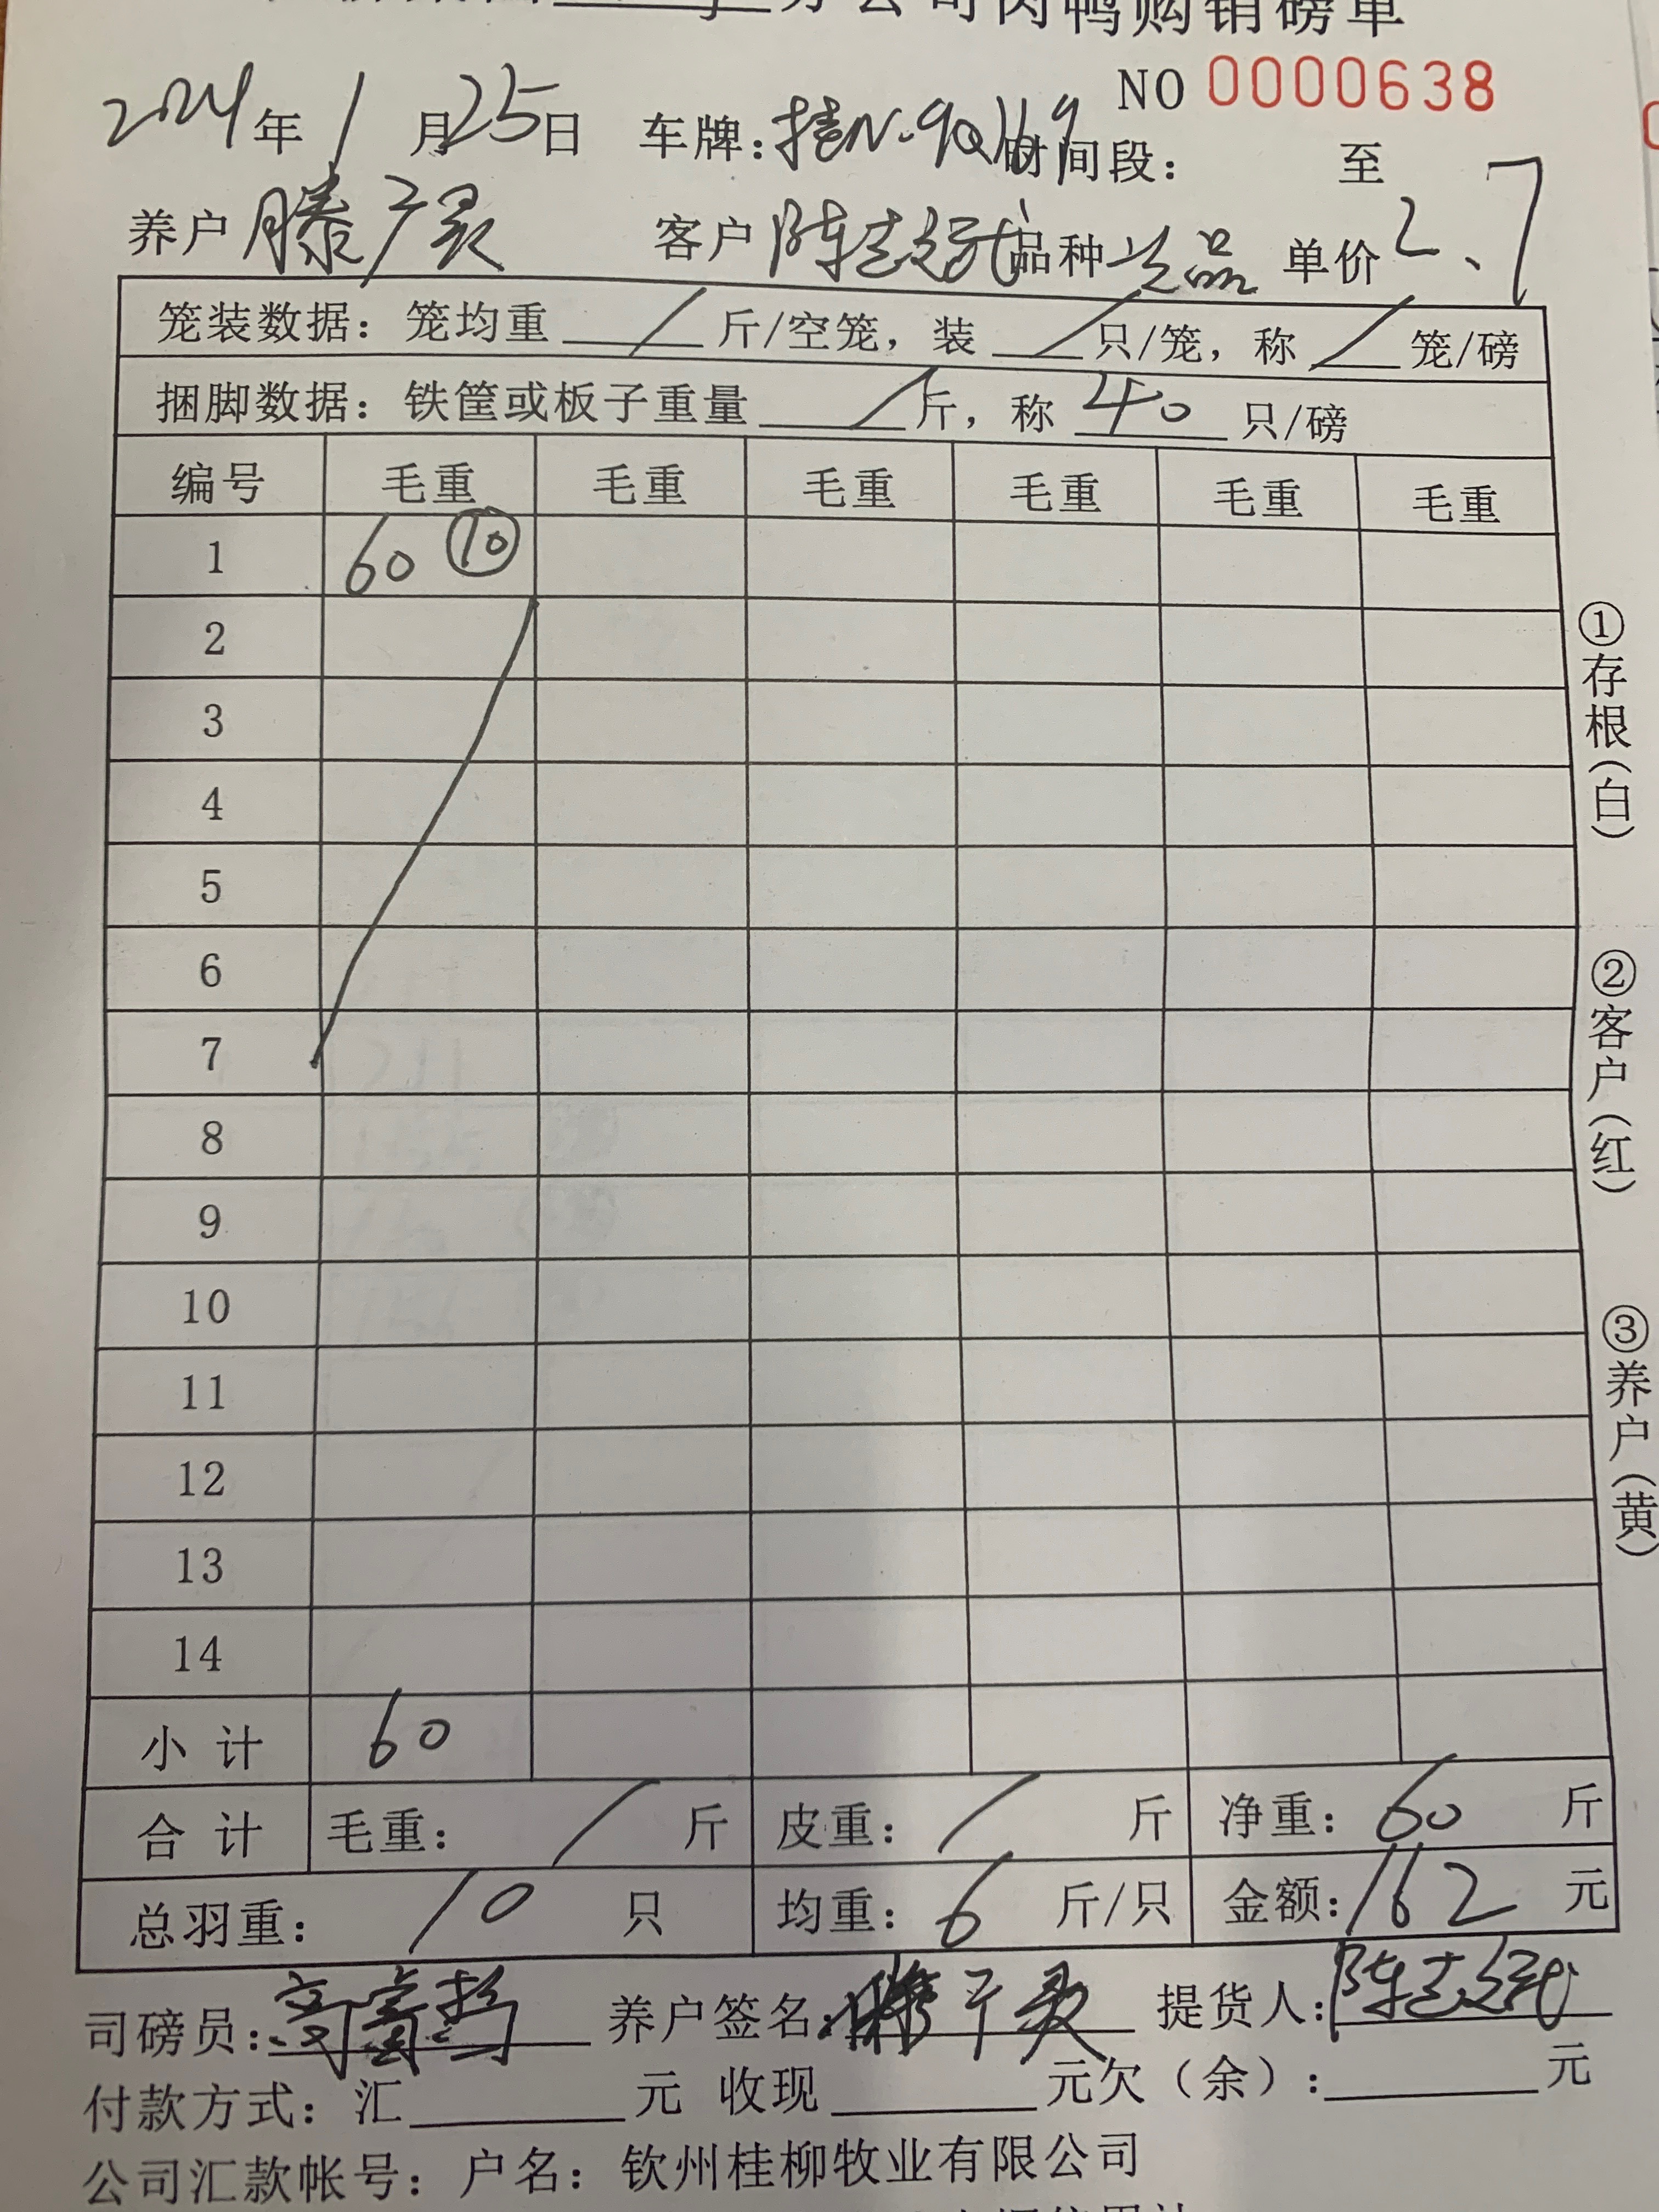 分公司肉鸭购销磅单
NO 0000638
2024年 1月25日 车牌:桂N·90169 时间段: 至
养户 滕广灵 客户 陈志 品种 次品 单价 2.7
笼装数据: 笼均重 / 斤/空笼, 装 / 只/笼, 称 / 笼/磅
捆脚数据: 铁筐或板子重量 / 斤, 称 40 只/磅
编号 毛重 毛重 毛重 毛重 毛重 毛重
1 60 ⑩
2
3
4
5
6
7
8
9
10
11
12
13
14
小计 60
合计 毛重: / 斤 皮重: / 斤 净重: 60 斤
总羽重: 10 只 均重: 6 斤/只 金额: 162 元
司磅员: 养户签名: 滕广灵 提货人: 陈志
付款方式: 汇 元 收现 元欠(余): 元
公司汇款帐号: 户名: 钦州桂柳牧业有限公司
①存根(白)
②客户(红)
③养户(黄)